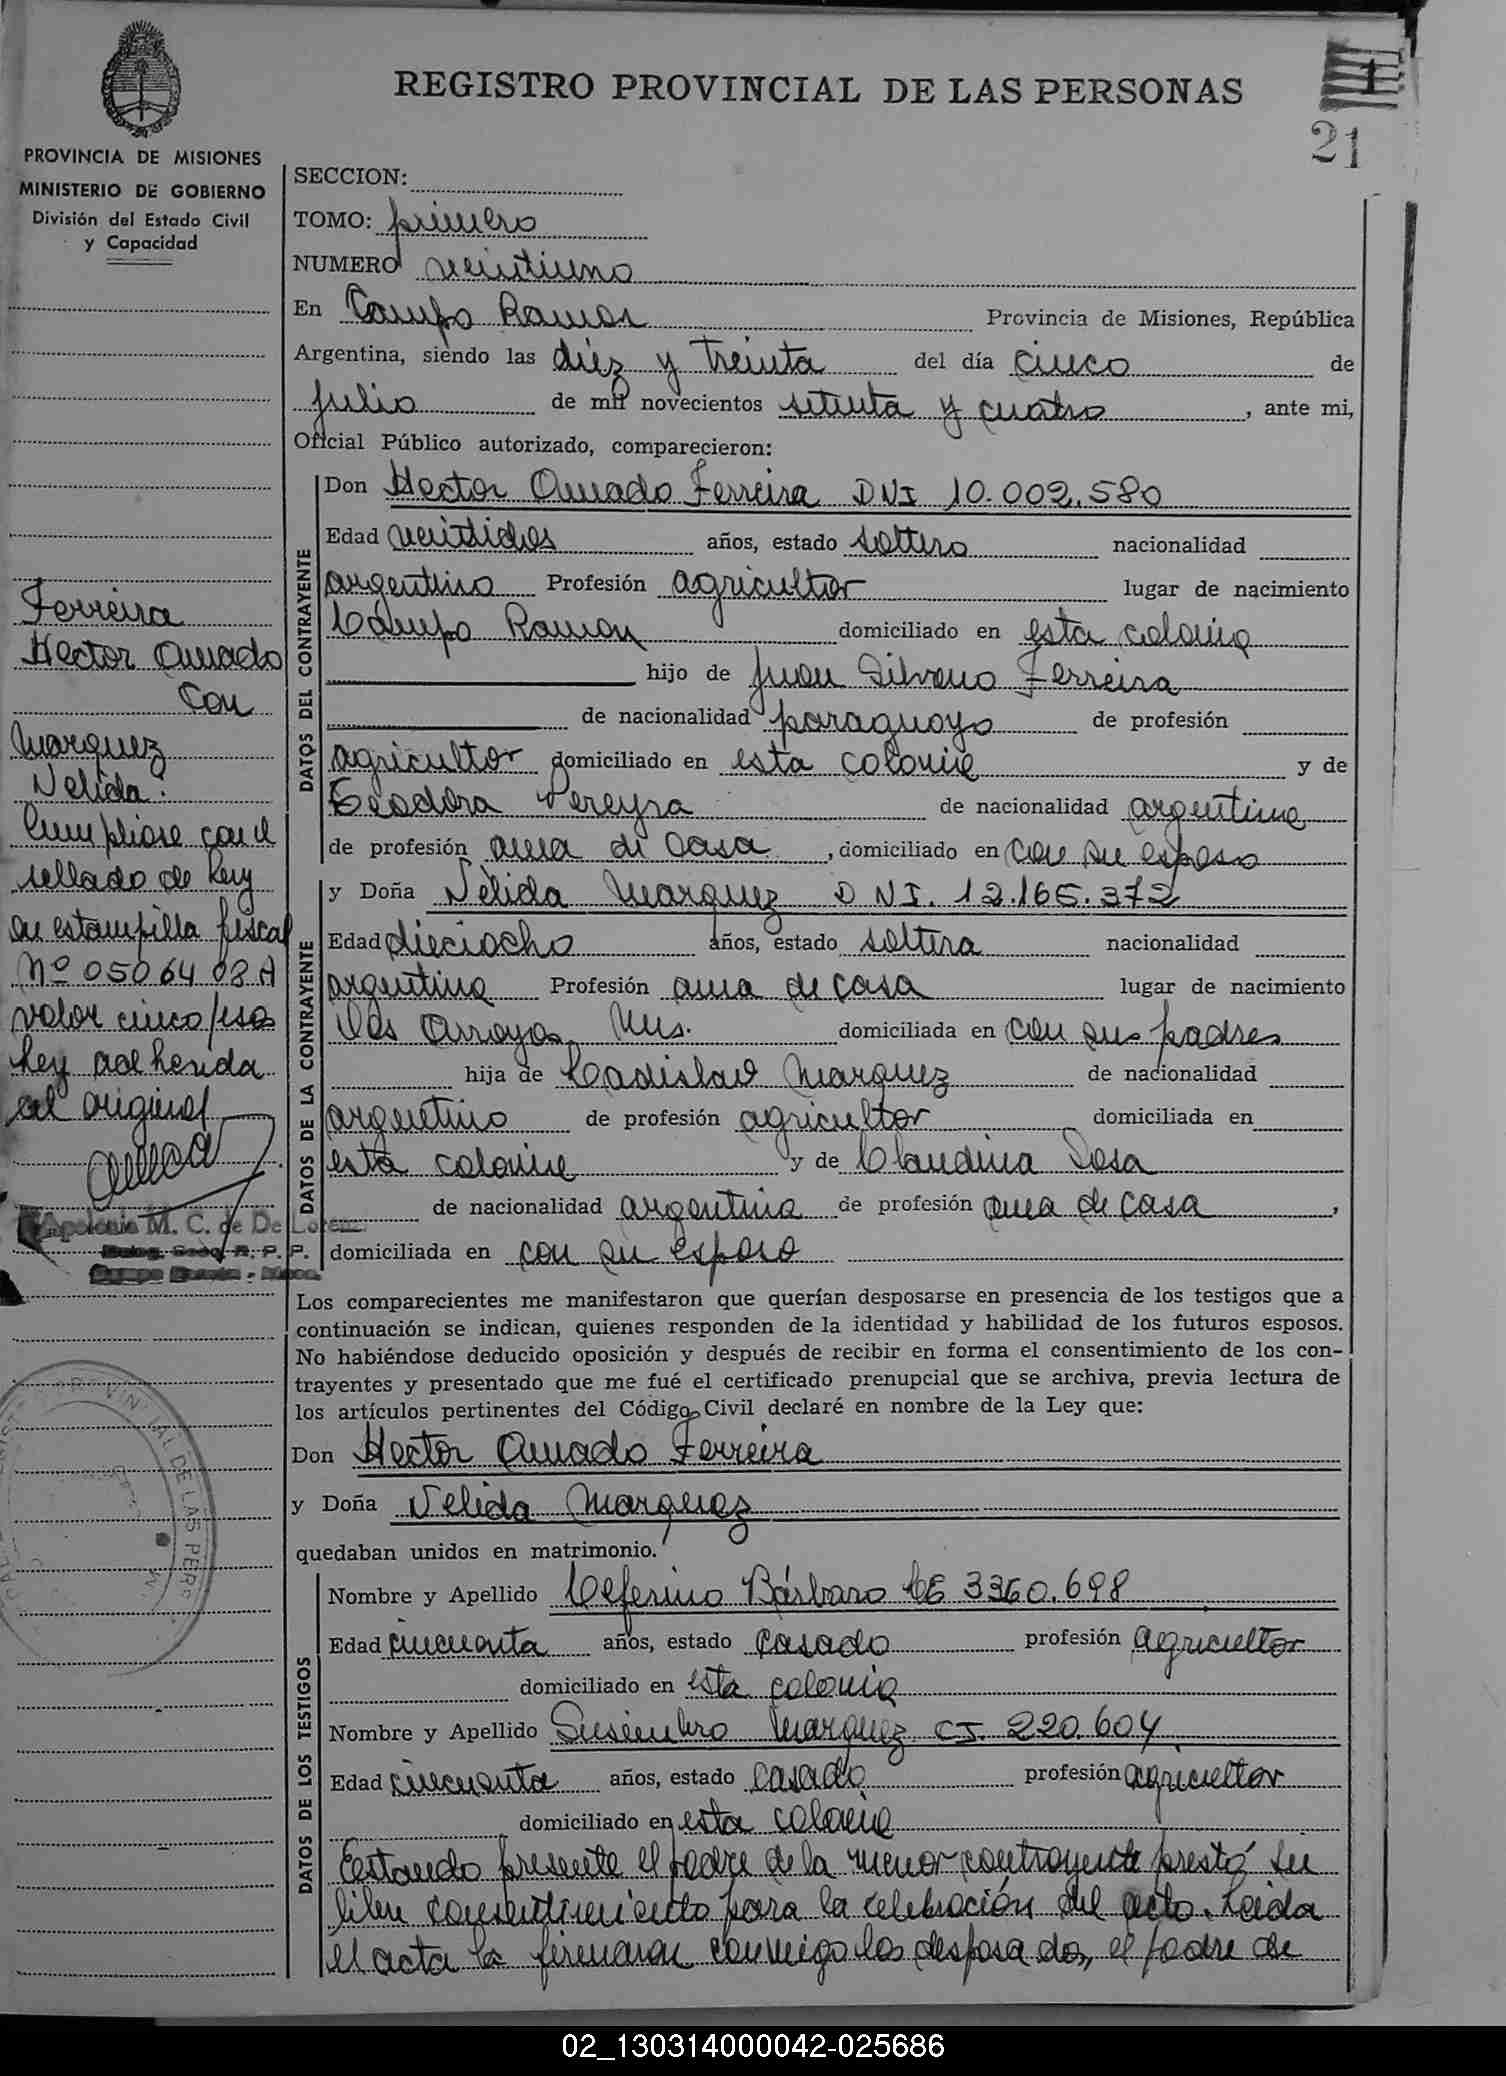 REGISTRO PROVINCIAL DE LAS PERSONAS
1
21
PROVINCIA DE MISIONES
MINISTERIO DE GOBIERNO
División del Estado Civil
y Capacidad
SECCION:
TOMO: primero
NUMERO veintiuno
En Campo Ramon Provincia de Misiones, República
Argentina, siendo las diez y treinta del día cinco de
julio de mil novecientos setenta y cuatro, ante mi,
Oficial Público autorizado, comparecieron:
DATOS DEL CONTRAYENTE
Don Hector Amado Ferreira DNI 10.002.580
Edad veintidos años, estado soltero nacionalidad
argentino Profesión agricultor lugar de nacimiento
Campo Ramon domiciliado en esta colonia
hijo de Juan Silvano Ferreira
de nacionalidad paraguayo de profesión
agricultor domiciliado en esta colonia y de
Teodora Pereyra de nacionalidad argentina
de profesión ama de casa, domiciliado en con su esposo
DATOS DE LA CONTRAYENTE
y Doña Nélida Marquez DNI. 12.165.372
Edad dieciocho años, estado soltera nacionalidad
argentina Profesión ama de casa lugar de nacimiento
Dos Arroyos, Mnes. domiciliada en con sus padres
hija de Ladislao Marquez de nacionalidad
argentino de profesión agricultor domiciliada en
esta colonia y de Claudina Sosa
de nacionalidad argentina de profesión ama de casa,
domiciliada en con su esposo
Ferreira
Hector Amado
con
Marquez
Nelida.
Cumpliose con el
sellado de Ley
en estampilla fiscal
Nº 0506408A
valor cinco pesos
Ley adherida
al original
Apolonia M. C. de De
R. P. P.
Los comparecientes me manifestaron que querían desposarse en presencia de los testigos que a
continuación se indican, quienes responden de la identidad y habilidad de los futuros esposos.
No habiéndose deducido oposición y después de recibir en forma el consentimiento de los con-
trayentes y presentado que me fué el certificado prenupcial que se archiva, previa lectura de
los artículos pertinentes del Código Civil declaré en nombre de la Ley que:
Don Hector Amado Ferreira
y Doña Nelida Marquez
quedaban unidos en matrimonio.
DATOS DE LOS TESTIGOS
Nombre y Apellido Ceferino Bárbaro LE 3360.698
Edad cincuenta años, estado casado profesión agricultor
domiciliado en esta colonia
Nombre y Apellido Marquez CI. 220.604
Edad cincuenta años, estado casado profesión agricultor
domiciliado en esta colonia
Estando presente el padre de la menor contrayente prestó su
libre consentimiento para la celebración del acto. Leida
el acta la firmaron conmigo los desposados, el padre de
02_130314000042-025686